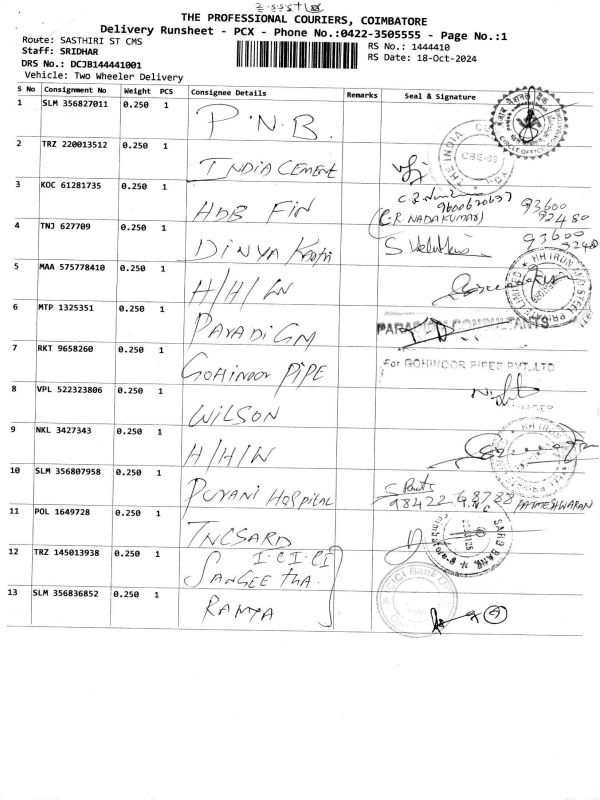 THE PROFESSIONAL COURIERS, COIMBATORE
Delivery Runsheet - PCX - Phone No.:0422-3505555 - Page No.:1
Route: SASTHIRI ST CMS
RS No.: 1444410
Staff: SRIDHAR
RS Date: 18-Oct-2024
DRS No.: DCJB144441001
Vehicle: Two Wheeler Delivery
S No Consignment No Weight PCS Consignee Details Remarks Seal & Signature
1 SLM 356827011 0.250 1 P.N.B.
2 TRZ 220013512 0.250 1 INDIA CEMENT
THE INDIA
CBE-
3 KOC 61281735 0.250 1 HDB FIN
9600620637 93600
(C.R. NADAKUMAR) 92480
4 TNJ 627709 0.250 1 DINYA
93600
5 MAA 575778410 0.250 1 H/H/W
KH IRON AND STEEL PRIVATE LIMITED
6 MTP 1325351 0.250 1 PARADIGM
PARADIGM CONSULTANTS
7 RKT 9658260 0.250 1 GOHINOOR PIPE
For GOHINOOR PIPES PVT.LTD
8 VPL 522323806 0.250 1 WILSON
9 NKL 3427343 0.250 1 H/H/W
KH IRON AND STEEL
10 SLM 356807958 0.250 1 PURANI HOSPITAL
98422 68788 PARMESHWARAN
11 POL 1649728 0.250 1 TNCSARD
SARD BANK
12 TRZ 145013938 0.250 1 I.C.I.CI
SANGEETHA.
ICICI Bank
13 SLM 356836852 0.250 1 RAMYA